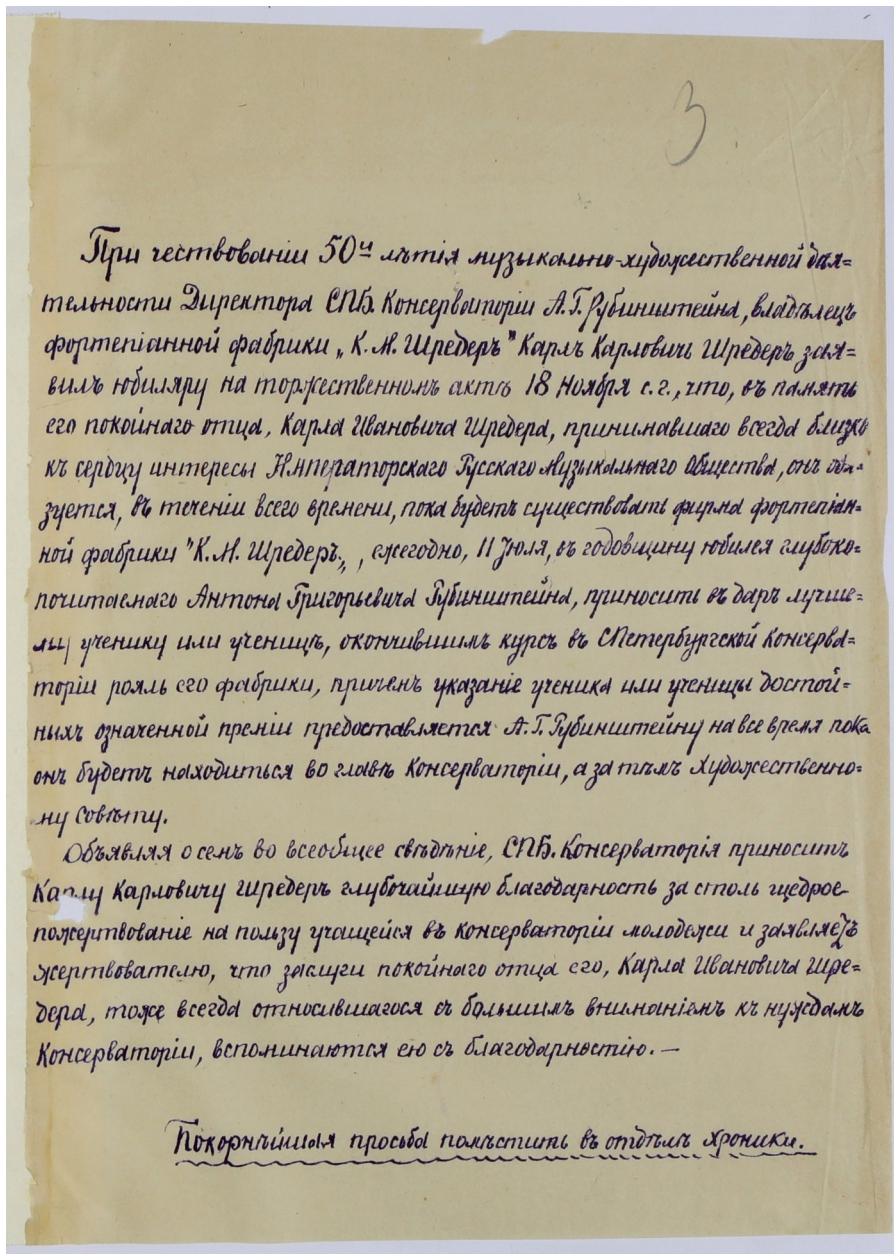 3
При чествованіи 50и лѣтія музыкально-художественной дѣя=
тельности Директора СПБ. Консерваторіи А. Г. Рубинштейна, владѣлецъ
фортепіанной фабрики „К. М. Шредеръ" Карлъ Карловичъ Шредеръ зая=
вилъ юбиляру на торжественномъ актѣ 18 Ноября с. г., что, въ память
его покойнаго отца, Карла Ивановича Шредера, принимавшаго всегда близко
къ сердцу интересы Императорскаго Русскаго Музыкальнаго Общества, онъ обя=
зуется, въ теченіи всего времени, пока будетъ существовать фирма фортепіан=
ной фабрики "К. М. Шредеръ„, ежегодно, 11 Іюля, въ годовщину юбилея глубоко=
почитаемаго Антона Григорьевича Рубинштейна, приносить въ даръ лучше=
му ученику или ученицѣ, окончившимъ курсъ въ СПетербургской Консерва=
торіи рояль его фабрики, причемъ указаніе ученика или ученицы достой=
ныхъ означенной преміи предоставляется А. Г. Рубинштейну на все время пока
онъ будетъ находиться во главѣ Консерваторіи, а за тѣмъ Художественно=
му Совѣту.
Объявляя о семъ во всеобщее свѣдѣніе, СПБ. Консерваторія приноситъ
Карлу Карловичу Шредеръ глубочайшую благодарность за столь щедрое
пожертвованіе на пользу учащейся въ Консерваторіи молодежи и заявляетъ
жертвователю, что заслуги покойнаго отца его, Карла Ивановича Шре=
дера, тоже всегда относившагося съ большимъ вниманіемъ къ нуждамъ
Консерваторіи, вспоминаются ею съ благодарностію. —
Покорнѣйшая просьба помѣстить въ отдѣлѣ хроники.